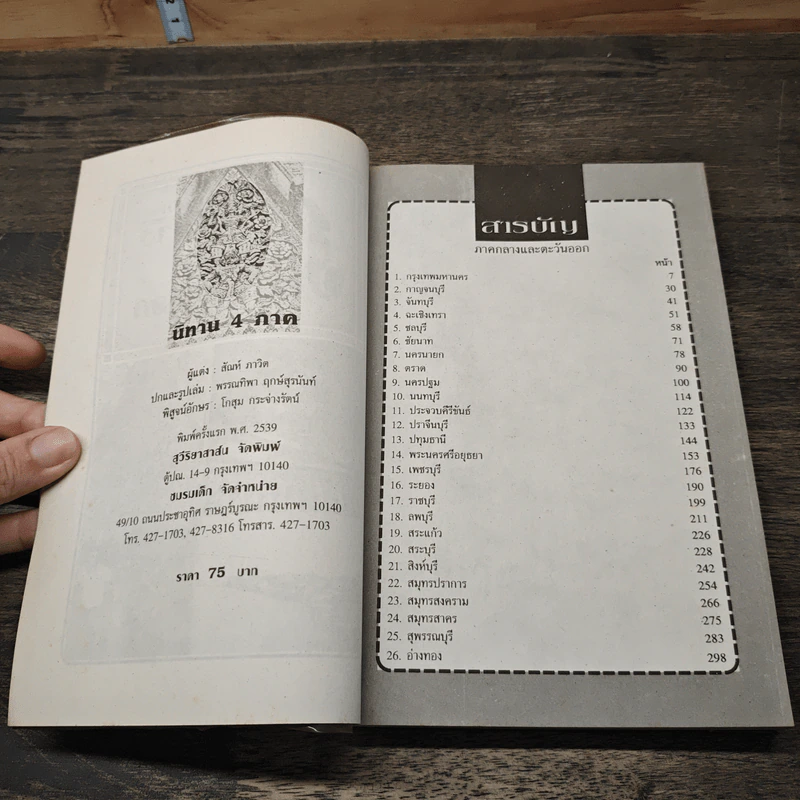 นิทาน 4 ภาค
ผู้แต่ง : สัณห์ ภาวิต
ปกและรูปเล่ม : พรรณทิพา ฤกษ์สุรนันท์
พิสูจน์อักษร : โกสุม กระจ่างรัตน์
พิมพ์ครั้งแรก พ.ศ. 2539
สุวีริยาสาส์น จัดพิมพ์
ตู้ปณ. 14-9 กรุงเทพฯ 10140
ชมรมเด็ก จัดจำหน่าย
49/10 ถนนประชาอุทิศ ราษฎร์บูรณะ กรุงเทพฯ 10140
โทร. 427-1703, 427-8316 โทรสาร. 427-1703
ราคา 75 บาท
สารบัญ
ภาคกลางและตะวันออก
หน้า
1. กรุงเทพมหานคร 7
2. กาญจนบุรี 30
3. จันทบุรี 41
4. ฉะเชิงเทรา 51
5. ชลบุรี 58
6. ชัยนาท 71
7. นครนายก 78
8. ตราด 90
9. นครปฐม 100
10. นนทบุรี 114
11. ประจวบคีรีขันธ์ 122
12. ปราจีนบุรี 133
13. ปทุมธานี 144
14. พระนครศรีอยุธยา 153
15. เพชรบุรี 176
16. ระยอง 190
17. ราชบุรี 199
18. ลพบุรี 211
19. สระแก้ว 226
20. สระบุรี 228
21. สิงห์บุรี 242
22. สมุทรปราการ 254
23. สมุทรสงคราม 266
24. สมุทรสาคร 275
25. สุพรรณบุรี 283
26. อ่างทอง 298